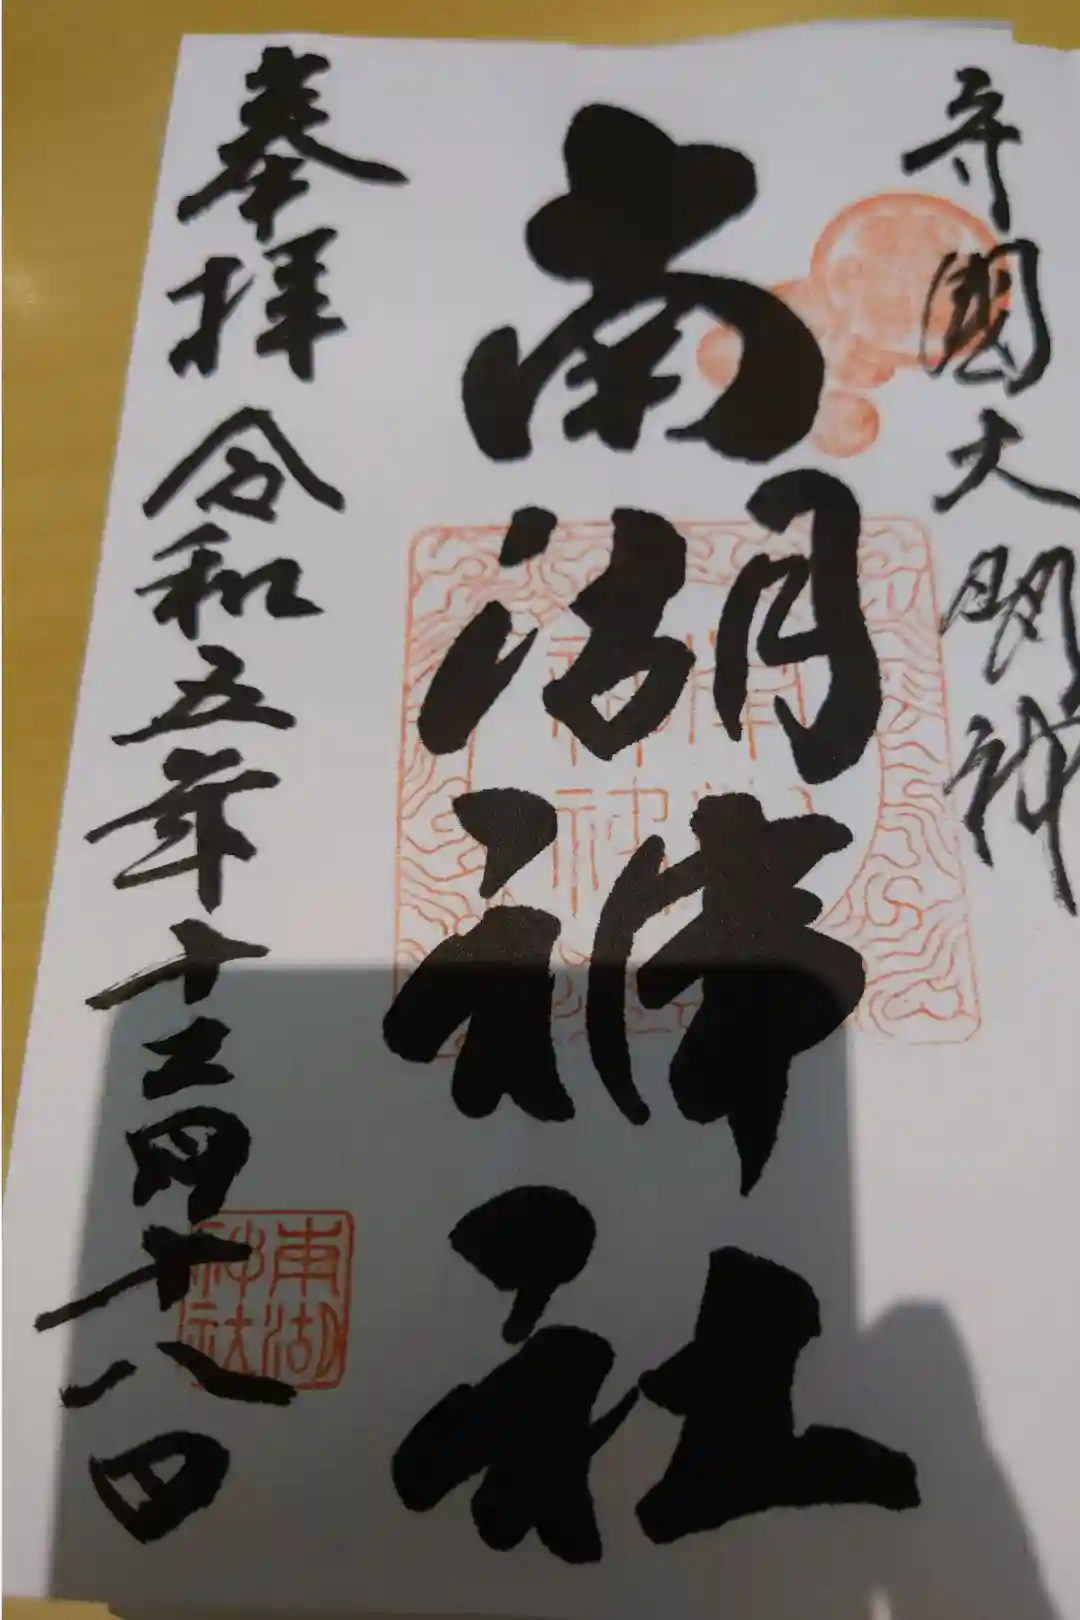 守國大明神
南湖神社
奉拝 令和五年十二月十八日
南湖神社